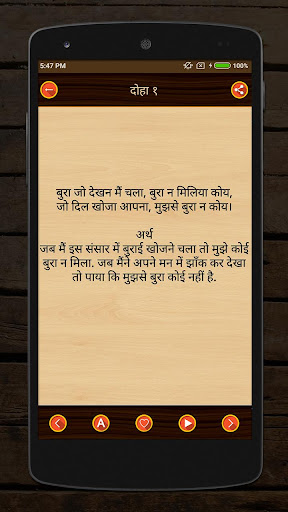 5:47 PM
100%
दोहा १
बुरा जो देखन मैं चला, बुरा न मिलिया कोय,
जो दिल खोजा आपना, मुझसे बुरा न कोय।
अर्थ
जब मैं इस संसार में बुराई खोजने चला तो मुझे कोई
बुरा न मिला. जब मैंने अपने मन में झाँक कर देखा
तो पाया कि मुझसे बुरा कोई नहीं है.
A